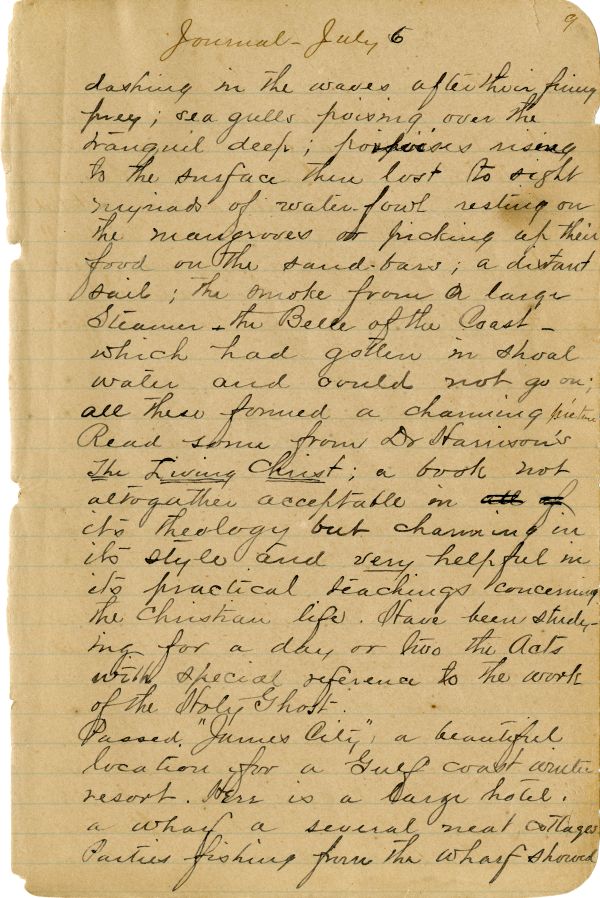 9
Journal - July 6
dashing in the waves after their finny
prey; sea gulls poising over the
tranquil deep; porpoises rising
to the surface then lost to sight
myriads of water-fowl resting on
the mangroves or picking up their
food on the sand-bars; a distant
sail; the smoke from a large
Steamer - the Belle of the Coast -
which had gotten in shoal
water and could not go on;
all these formed a charming picture
Read some from Dr Harrison's
The Living Christ; a book not
altogather acceptable in all of
it's theology but charming in
its style and very helpful in
its practical teachings concerning
the Christian life. Have been study-
ing for a day or two the Acts
with special reference to the work
of the Holy Ghost.
Passed "James City", a beautiful
location for a Gulf coast winter
resort. Here is a large hotel.
a wharf a several neat cottages
Parties fishing from the wharf showed